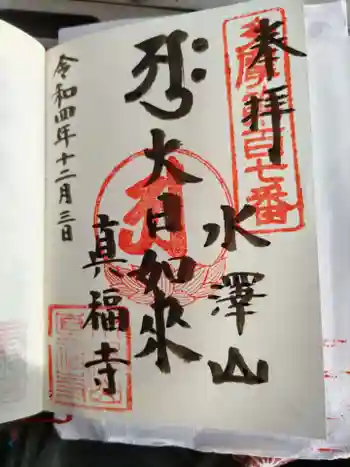 奉拝
水澤山
大日如来
真福寺
令和四年十二月三日